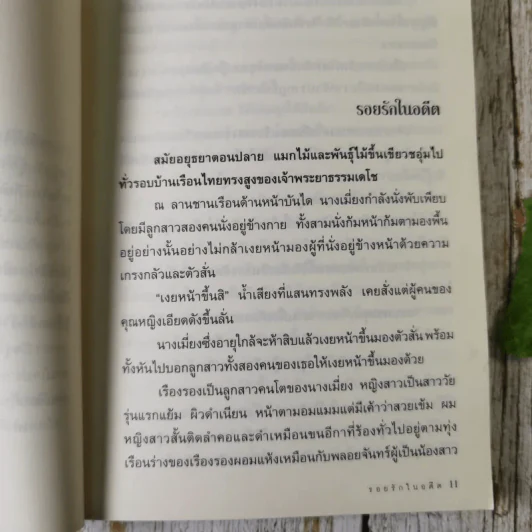 รอยรักในอดีต
สมัยอยุธยาตอนปลาย แมกไม้และพันธุ์ไม้ขึ้นเขียวชอุ่มไป
ทั่วรอบบ้านเรือนไทยทรงสูงของเจ้าพระยาธรรมเดโช
ณ ลานชานเรือนด้านหน้าบันได นางเมี่ยงกำลังนั่งพับเพียบ
โดยมีลูกสาวสองคนนั่งอยู่ข้างกาย ทั้งสามนั่งก้มหน้าก้มตามองพื้น
อยู่อย่างนั้นอย่างไม่กล้าเงยหน้ามองผู้ที่นั่งอยู่ข้างหน้าด้วยความ
เกรงกลัวและตัวสั่น
“เงยหน้าขึ้นสิ” น้ำเสียงที่แสนทรงพลัง เคยสั่งแต่ผู้คนของ
คุณหญิงเอียดดังขึ้นลั่น
นางเมี่ยงซึ่งอายุใกล้จะห้าสิบแล้วเงยหน้าขึ้นมองตัวสั่น พร้อม
ทั้งหันไปบอกลูกสาวทั้งสองคนของเธอให้เงยหน้าขึ้นมองด้วย
เรืองรองเป็นลูกสาวคนโตของนางเมี่ยง หญิงสาวเป็นสาววัย
รุ่นแรกแย้ม ผิวดำเนียน หน้าตามอมแมมแต่มีเค้าว่าสวยเข้ม ผม
หญิงสาวสั้นติดลำคอและดำเหมือนขนอีกาที่ร้องทั่วไปอยู่ตามทุ่ง
เรือนร่างของเรืองรองผอมแห้งเหมือนกับพลอยจันทร์ผู้เป็นน้องสาว
รอยรักในอดีต 11